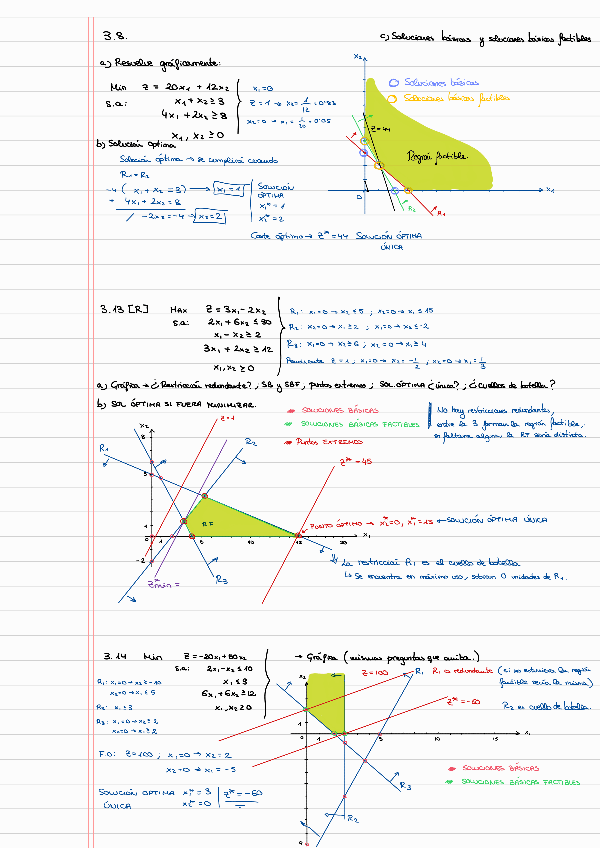 3.8.
c) Soluciones básicas y soluciones básicas factibles
a) Resolver gráficamente:
Min Z = 20x₁ + 12x₂
s.a: x₁ + x₂ ≥ 3
4x₁ + 2x₂ ≥ 8
x₁, x₂ ≥ 0
x₁=0
Z=1 → x₂= 1/12 = 0'83
x₂=0 → x₁ = 1/20 = 0'05
b) Solución óptima
Solución óptima → se cumplirá cuando
R₁ = R₂
-4 ( x₁ + x₂ = 3) → x₁=1
+ 4x₁ + 2x₂ = 8
/ -2x₂ = -4 → x₂=2
SOLUCIÓN
ÓPTIMA
x₁* = 1
x₂* = 2
Coste óptimo → Z* = 44 SOLUCIÓN ÓPTIMA
ÚNICA
x₂
Soluciones básicas
Soluciones básicas factibles
Z=44
Región factible
0
x₁
R₂
R₁
3.13 [R] Max Z = 3x₁ - 2x₂
s.a: 2x₁ + 6x₂ ≤ 30
x₁ - x₂ ≥ 2
3x₁ + 2x₂ ≥ 12
x₁, x₂ ≥ 0
R₁: x₁=0 → x₂ ≤ 5 ; x₂=0 → x₁ ≤ 15
R₂: x₂=0 → x₁ ≥ 2 ; x₁=0 → x₂ ≤ -2
R₃: x₁=0 → x₂ ≥ 6 ; x₂=0 → x₁ ≥ 4
Z=1 ; x₁=0 → x₂= -1/2 ; x₂=0 → x₁= 1/3
a) Gráfica → ¿Restricción redundante?, SB y SBF, puntos extremos ; SOL.ÓPTIMA ¿única? ; ¿Cuellos de botella?
b) SOL ÓPTIMA SI FUERA MINIMIZAR.
SOLUCIONES BÁSICAS
SOLUCIONES BÁSICAS FACTIBLES
Puntos EXTREMOS
No hay restricciones redundantes,
entre las 3 forman la región factible,
si faltara alguna la RF sería distinta.
x₂
Z=1
R₁
R₂
Z* = 45
RF
PUNTO ÓPTIMO → x₂*=0, x₁*=15 ← SOLUCIÓN ÓPTIMA ÚNICA
x₁
R₃
Z*min =
La restricción R₁ es el cuello de botella
↳ Se encuentra en máximo uso, sobran 0 unidades de R₁.
3.14 Min Z = -20x₁ + 50x₂
s.a: 2x₁ - x₂ ≤ 10
x₁ ≤ 3
6x₁ + 6x₂ ≥ 12
x₁, x₂ ≥ 0
→ Gráfica (mismas preguntas que antes.)
R₁: x₁=0 → x₂ ≥ -10
x₂=0 → x₁ ≤ 5
R₂: x₁ ≤ 3
R₃: x₁=0 → x₂ ≥ 2
x₂=0 → x₁ ≥ 2
F.O: Z=100 ; x₁=0 → x₂ = 2
x₂=0 → x₁ = -5
SOLUCIÓN ÓPTIMA x₁* = 3
ÚNICA x₂* = 0
Z* = -60
x₂
Z=100
R₁ R₁ es redundante (si no estuviera la región
factible sería la misma)
Z* = -60
R₂ es cuello de botella.
x₁
SOLUCIONES BÁSICAS
SOLUCIONES BÁSICAS FACTIBLES
R₃
R₂